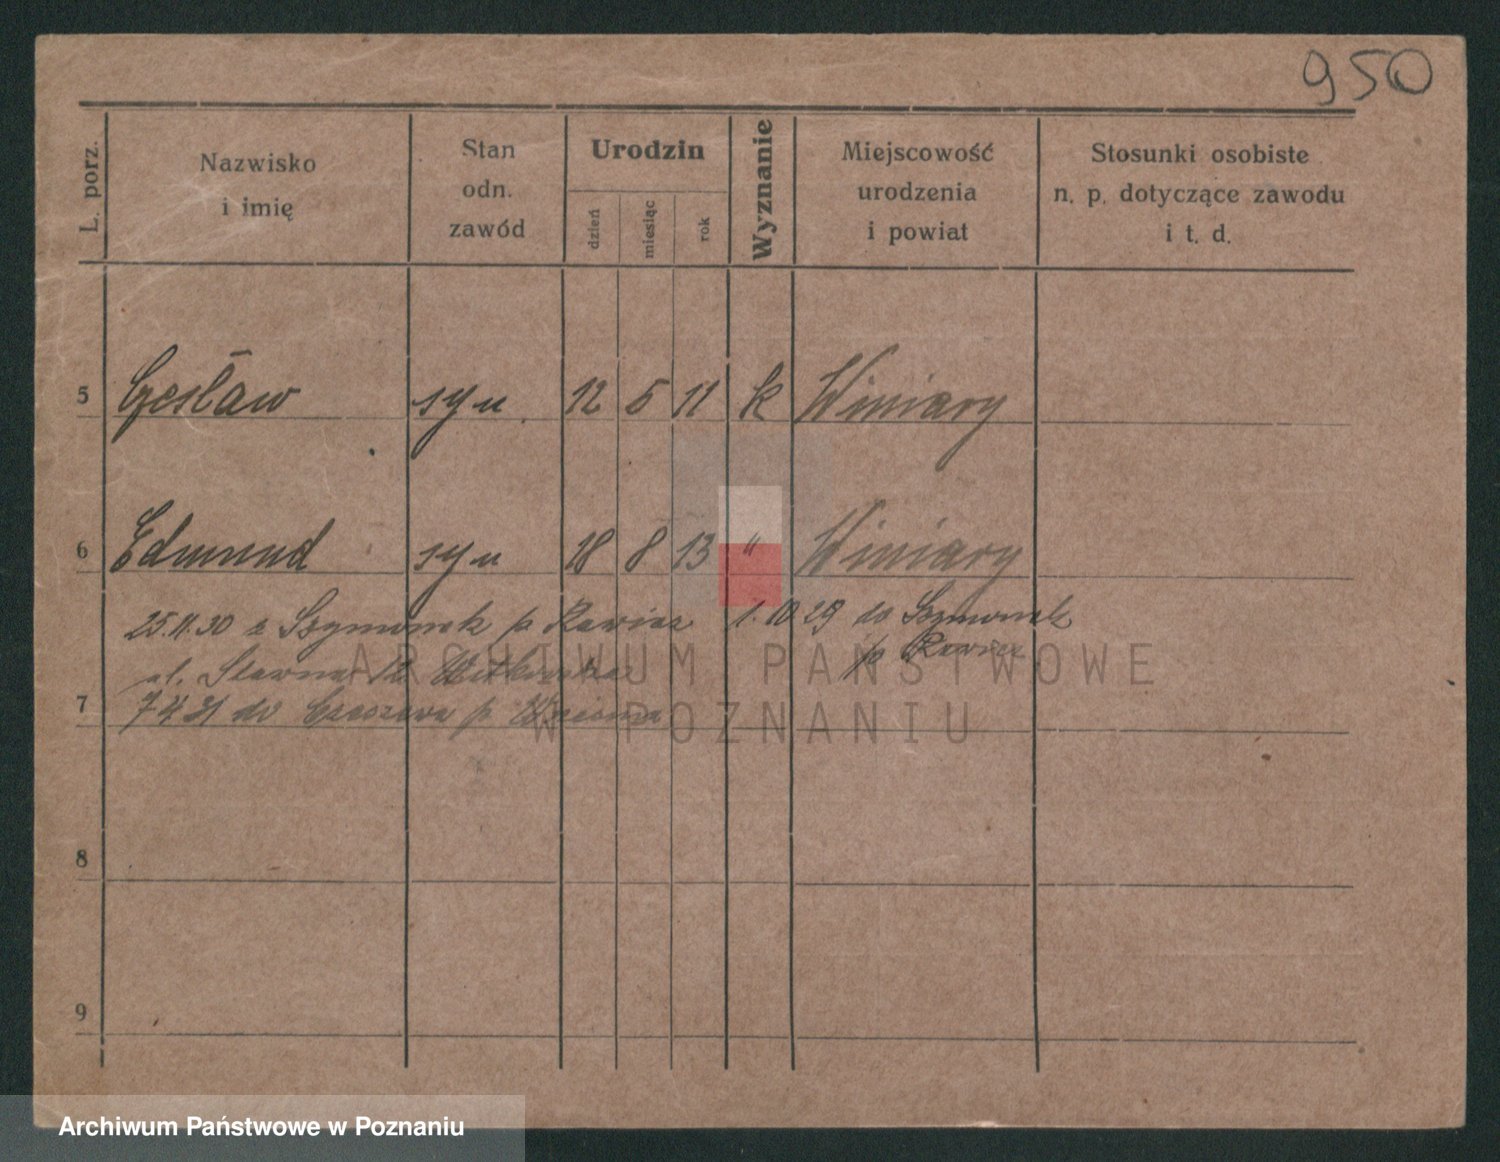 950
L. porz.
Nazwisko
i imię
Stan
odn.
zawód
Urodzin
dzień
miesiąc
rok
Wyznanie
Miejscowość
urodzenia
i powiat
Stosunki osobiste
n. p. dotyczące zawodu
i t. d.
5 Czesław syn 12 5 11 k Winiary
6 Edmund syn 18 8 13 " Winiary
25.11.30 z Szymonek p Rawicz 1.10 29 do Szymonek
p Rawicz
ul. Sławna 12
7 7 4 31 do p
8
9
ARCHIWUM PAŃSTWOWE
W POZNANIU
Archiwum Państwowe w Poznaniu